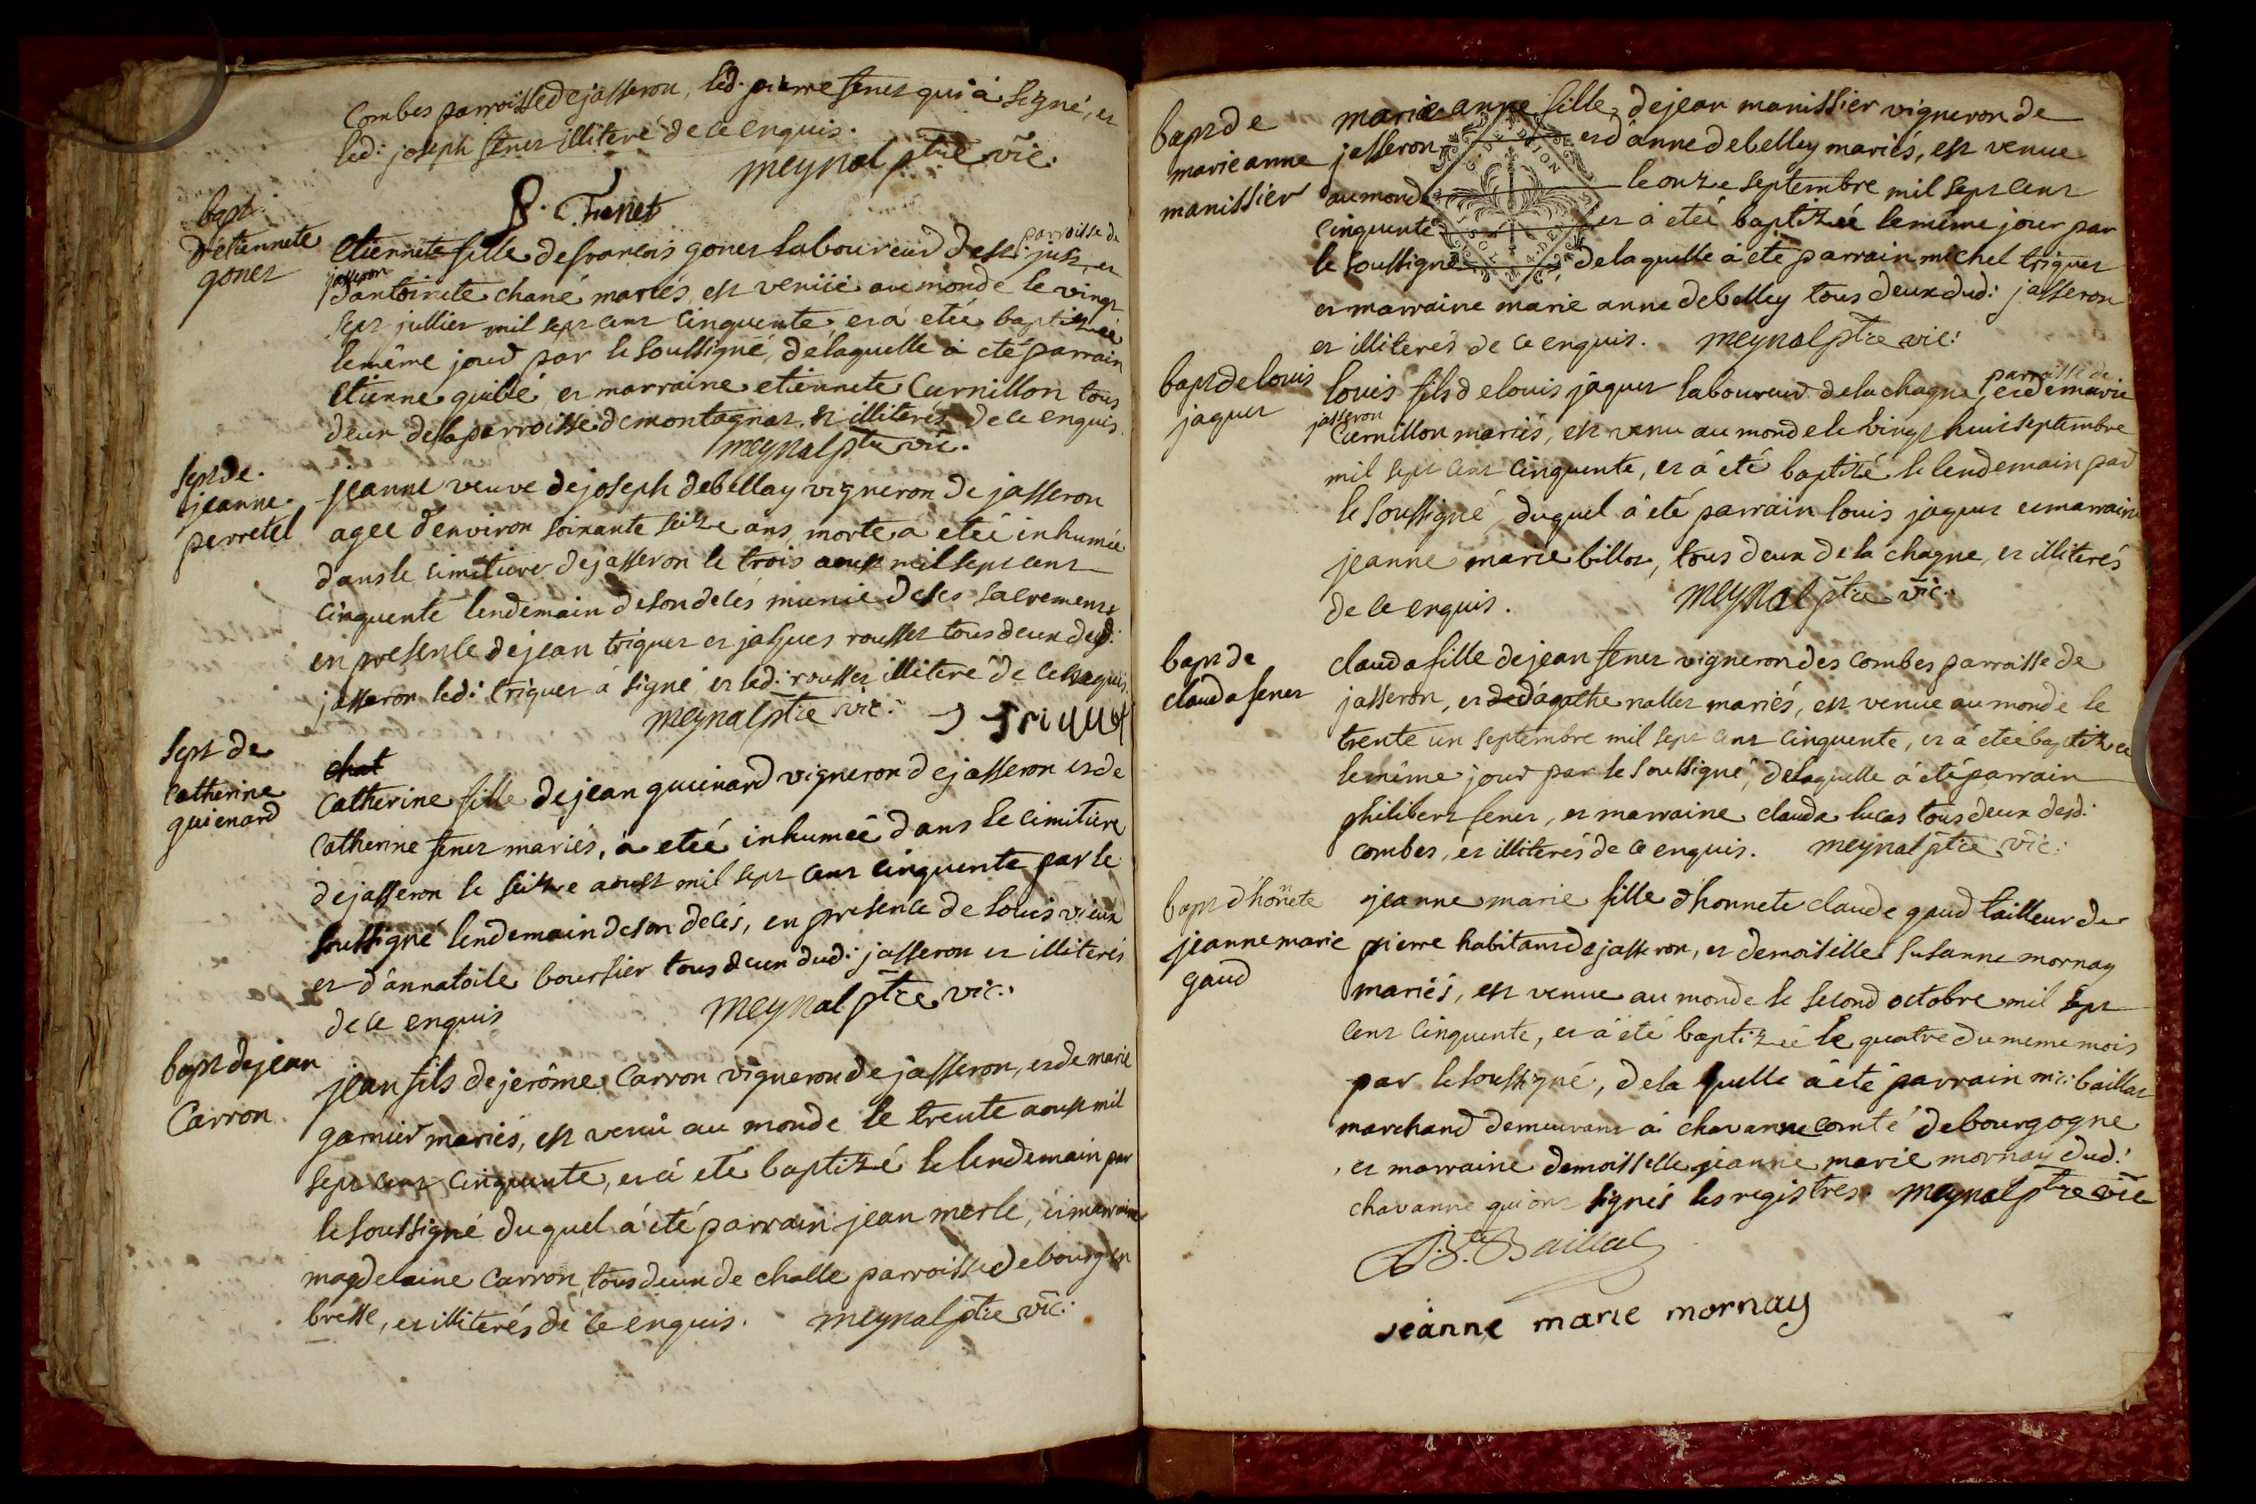 combes parroisse de jasseron, led: pierre fenet qui á signé, et
led: joseph fenet illiteré de ce enquis.
meynal ptre vic:
P. Fenet
bapt
d'etiennete
gonet
parroisse de
Etiennete fille de francois gonet laboureur de st: just, et
jasseron
d'antoinete chané mariés, est venüe au monde le vingt
sept jullier mil sept cent cinquente et a eteé baptizeé
le même jour par le soussigné, de laquelle á eté parrain
Etienne guillé et marraine etiennete Curnillon tous
deux de la parroisse de montagnat, et illiterés de ce enquis.
meynal ptre vic.
sept de
jeanne
perretel
jeanne veuve de joseph debellay vigneron de jasseron
ageé d'environ soixante seize ans morte a eteé inhumeé
dans le cimetiere de jasseron le trois aoust mil sept cent
cinquente lendemain de son décés munie de ses sacremens
en presence de jean triquet et jaques rousset tous deux dud:
jasseron led: triquet á signé et led: rousset illiteré de ce enquis.
meynal ptre vic: J triquet
sept de
catherine
guienard
chat
Catherine fille de jean guienard vigneron de jasseron et de
Catherine fenet mariés, á eteé inhumeé dans le cimitiere
de jasseron le seize aoust mil sept cent cinquente par le
soussigné lendemain de son decés, en presence de louis vieux
et d'annatoile boursier tous deux dud: jasseron et illiterés
de ce enquis meynal ptre vic:
bapt de jean
Carron
jean fils de jerôme Carron vigneron de jasseron, et de marie
garnier mariés, est venu au monde le trente aoust mil
sept cent cinquente, et á eté baptizé le lendemain par
le soussigné duquel á été parrain jean merle, et marraine
magdelaine Carron, tous deux de challe parroisse de bourg en
bresse, et illiterés de ce enquis. meynal ptre vic:
bapt de
marie anne
manissier
marie anne fille de jean manissier vigneron de
jasseron et d'anne debelley mariés, est venue
au monde le onze septembre mil sept cent
cinquente et á eteé baptizeé le même jour par
le soussigné de laquelle á eté parrain michel triquet
et marraine marie anne debelley tous deux dud: jasseron
et illiterés de ce enquis. meynal ptre vic:
bapt de louis
jaquet
parroisse de
louis fils de louis jaquet laboureur de la chagne, et de marie
jasseron
Curnillon mariés, est venu au monde le vingt huit septembre
mil sept cent cinquente, et á eté baptizé le lendemain par
le soussigné, duquel á été parrain louis jaquet et marraine
jeanne marie billot, tous deux de la chagne, et illiterés
de ce enquis. meynal ptre vic:
bapt de
clauda fenet
clauda fille de jean fenet vigneron des combes parroisse de
jasseron, et de d'agathe nallet mariés, est venue au monde le
trente un septembre mil sept cent cinquente, et á eteé baptizeé
le même jour par le soussigné, de laquelle á été parrain
philibert fenet, et marraine clauda lucas tous deux desd:
combes, et illiterés de ce enquis. meynal ptre vic:
bapt d'honnete
jeanne marie
gaud
jeanne marie fille d'honnete claude gaud tailleur de
pierre habitant de jasseron, et demoiselle susanne mornay
mariés, est venue au monde le second octobre mil sept
cent cinquente, et á eté baptizeé le quatre du meme mois
par le soussigné, de la quelle á été parrain baillat
marchand demeurant á chavanne comté de bourgogne
, et marraine demoisselle jeanne marie mornay dud:
chavanne qui ont signés les registres. meynal ptre vic
Baillat
jeanne marie mornay